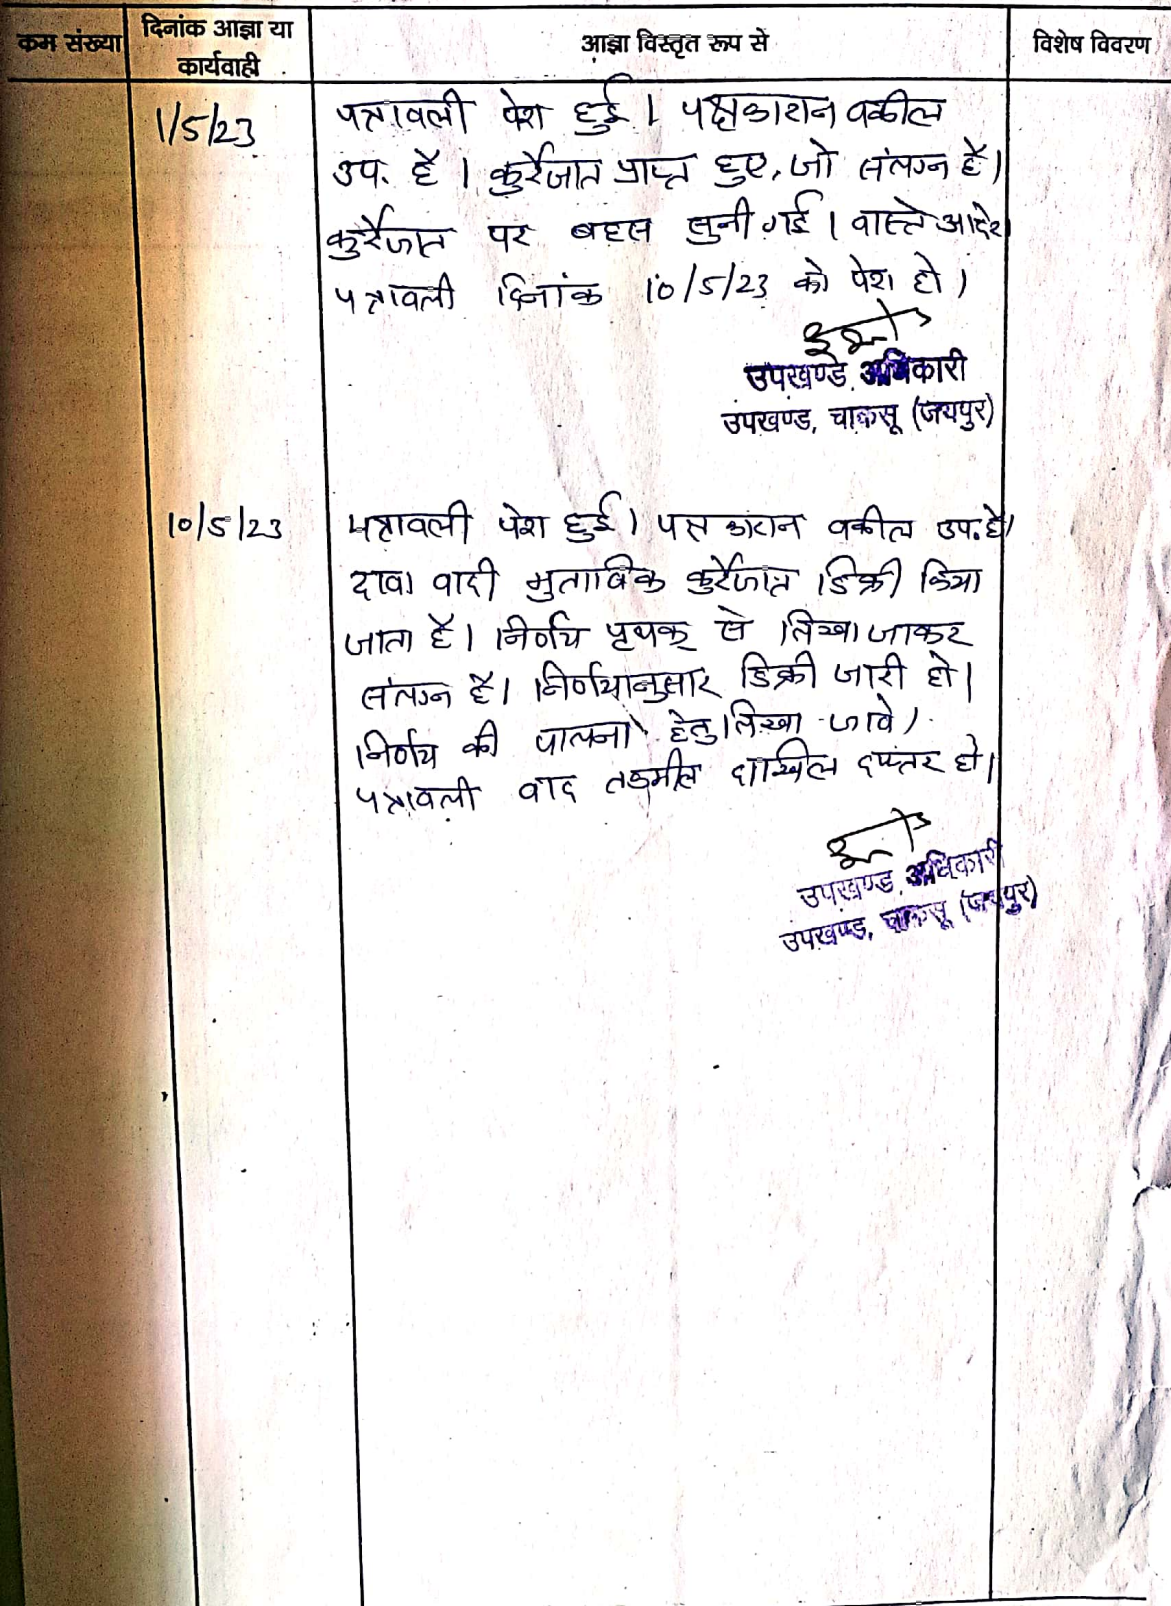 कम संख्या
दिनांक आज्ञा या
कार्यवाही
आज्ञा विस्तृत रूप से
विशेष विवरण
1/5/23
पत्रावली पेश हुई । पक्षकारान वकील
उप. है । कुर्रेजात प्राप्त हुए, जो संलग्न है।
कुर्रेजात पर बहस सुनी गई । वास्ते आदेश
पत्रावली दिनांक 10/5/23 को पेश हो ।
उपखण्ड अधिकारी
उपखण्ड, चाकसू (जयपुर)
10/5/23
पत्रावली पेश हुई । पक्षकारान वकील उप. है।
दावा वादी मुताबिक कुर्रेजात डिक्री किया
जाता है । निर्णय पृथक् से लिखा जाकर
संलग्न है। निर्णयानुसार डिक्री जारी हो ।
निर्णय की पालना हेतु लिखा जावे ।
पत्रावली वाद तकमील दाखिल दफ्तर हो ।
उपखण्ड अधिकारी
उपखण्ड, चाकसू (जयपुर)